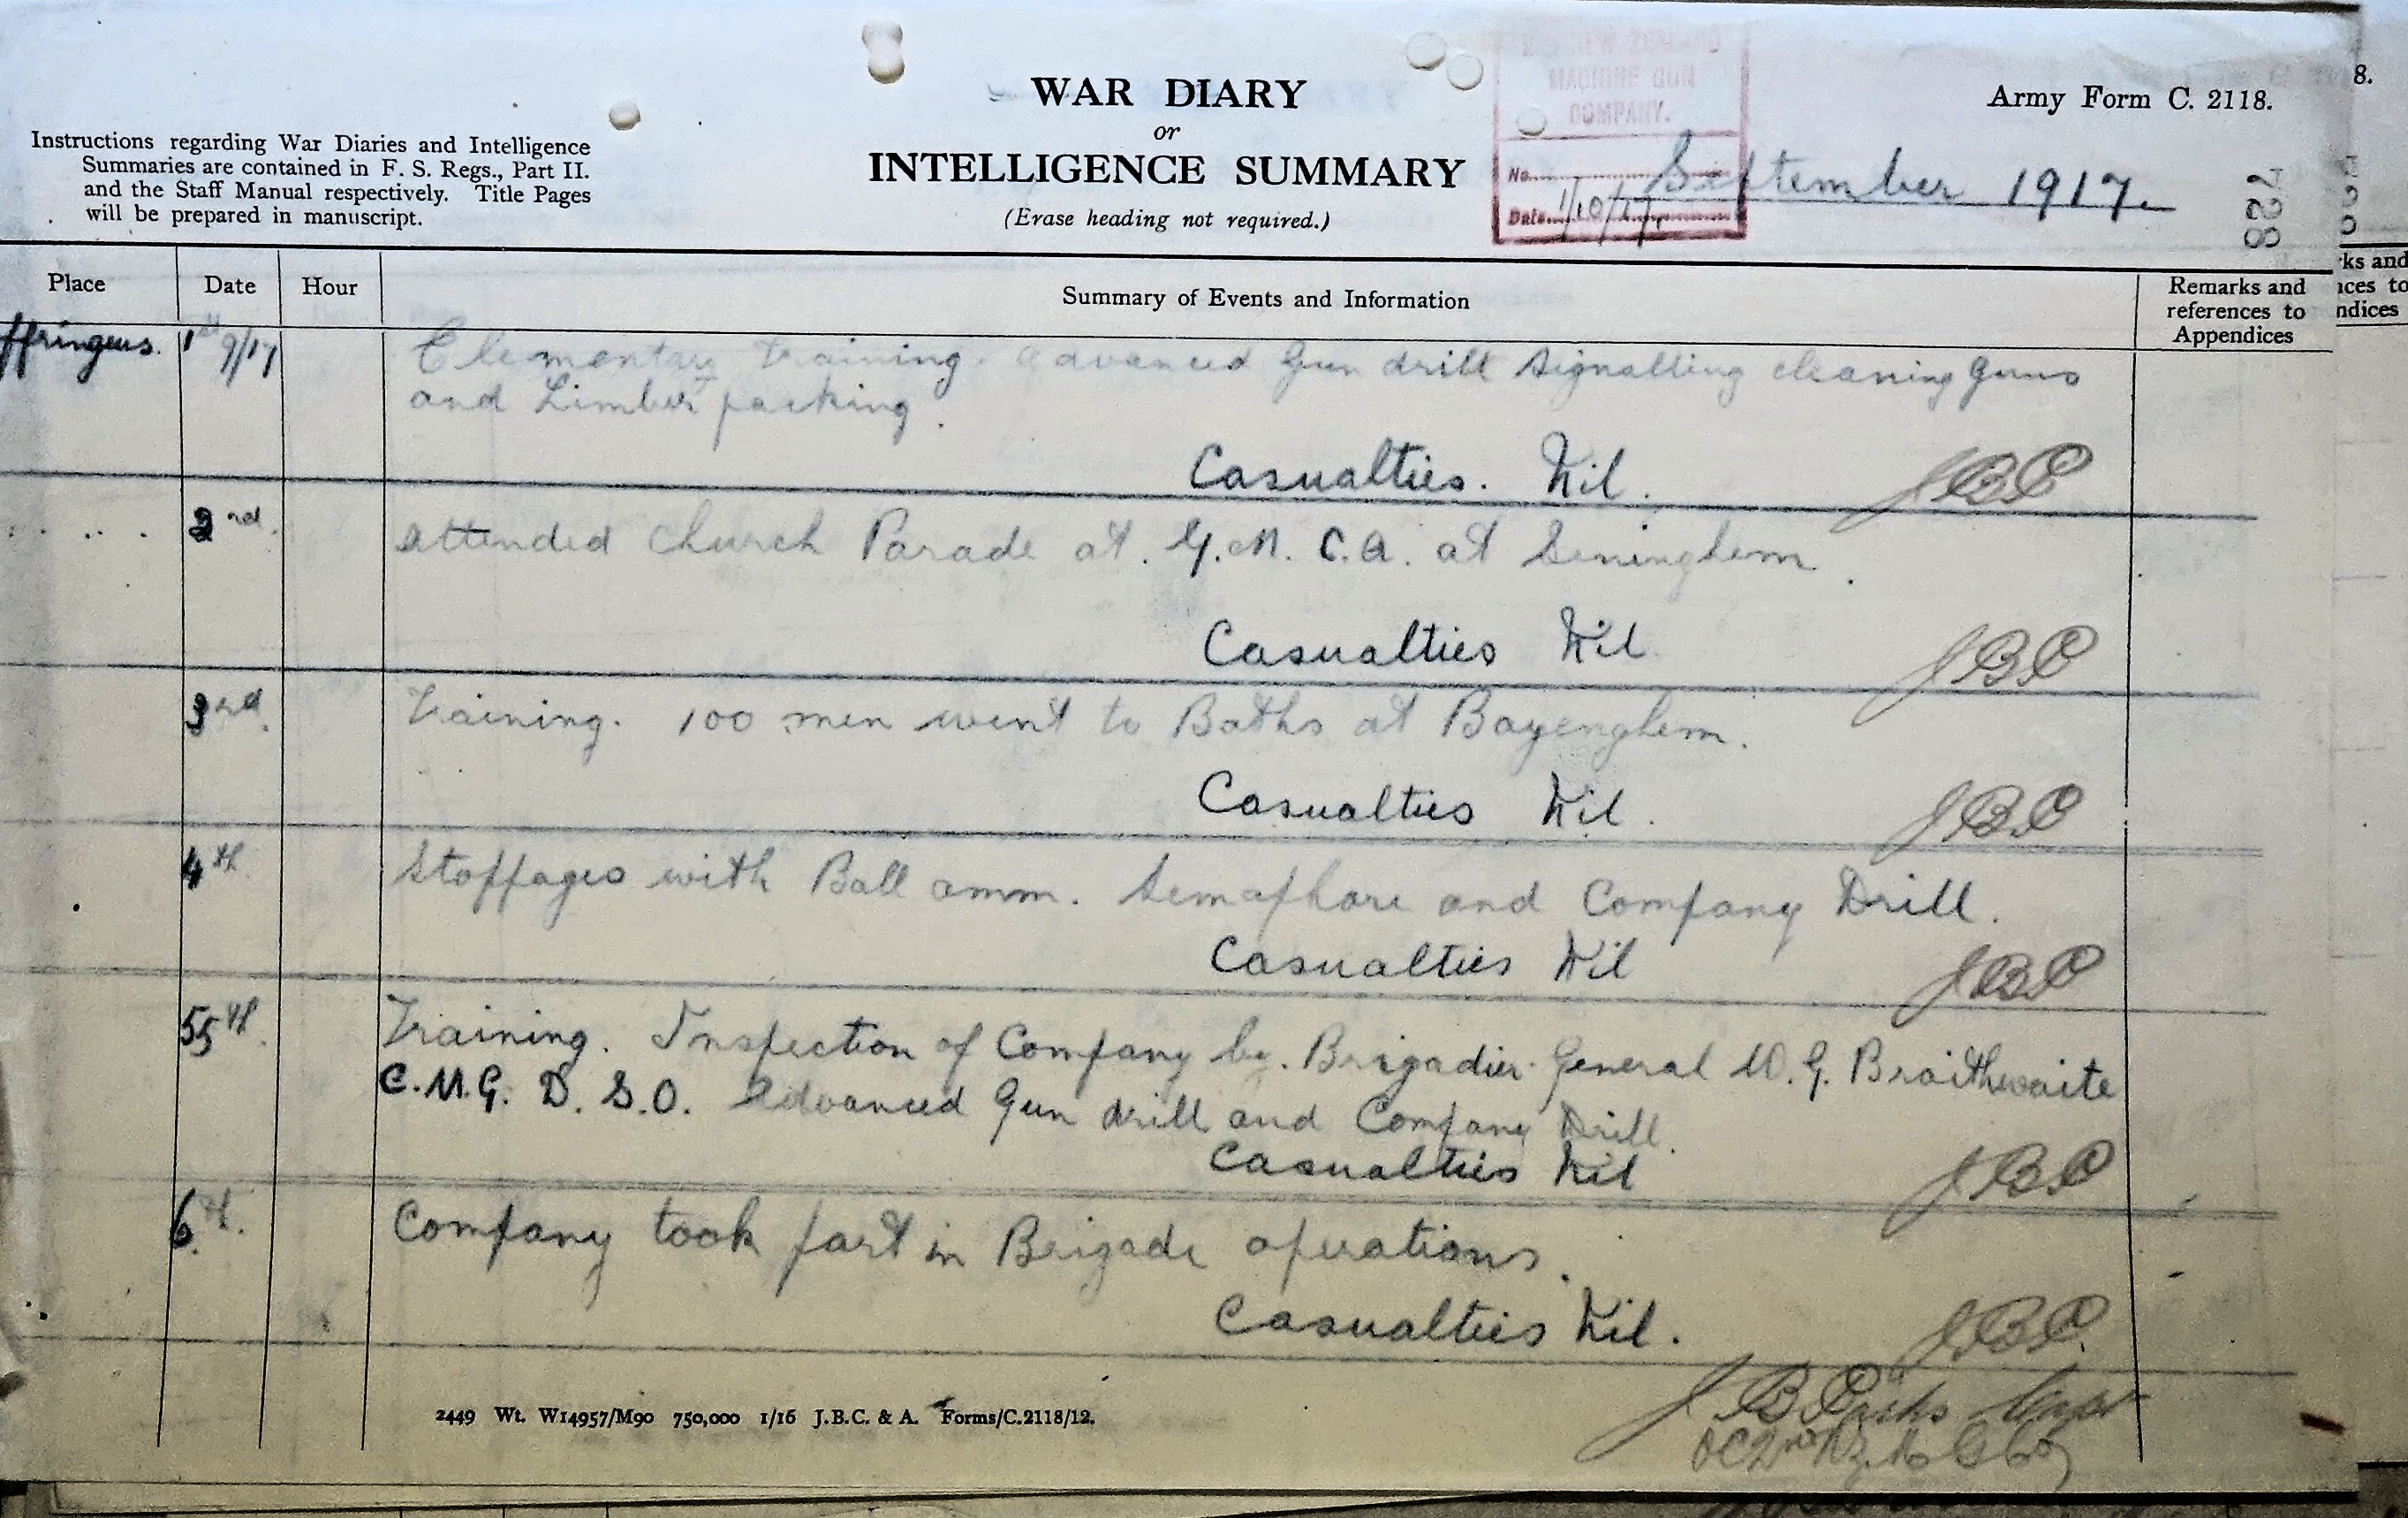 WAR DIARY
or
INTELLIGENCE SUMMARY
(Erase heading not required.)
Instructions regarding War Diaries and Intelligence
Summaries are contained in F. S. Regs., Part II.
and the Staff Manual respectively. Title Pages
will be prepared in manuscript.
NEW ZEALAND
MACHINE GUN
COMPANY.
No.
Date 1/10/17.
Army Form C. 2118.
8.
September 1917.
822
Place Date Hour Summary of Events and Information Remarks and references to Appendices
rks and
nces to
ndices
ffringeus. 1st 9/17 Elementary Training. Advanced Gun drill Signalling cleaning guns
and Limber packing.
Casualties. Nil. JBP
2nd. Attended Church Parade at. Y.M.C.A. at Seninghem.
Casualties Nil JBP
3rd. Training. 100 men went to Baths at Bayenghem.
Casualties Nil. JBP
4th Stoppages with Ball amm. Semaphore and Company Drill.
Casualties Nil JBP
55th. Training. Inspection of Company by. Brigadier General W. G. Braithwaite
C.M.G. D.S.O. Advanced Gun drill and Company Drill.
Casualties Nil JBP
6th. Company took part in Brigade operations.
Casualties Nil. JBP
J B Parks Capt
OC 2nd NZ M G Coy
2449 Wt. W14957/M90 750,000 1/16 J.B.C. & A. Forms/C.2118/12.